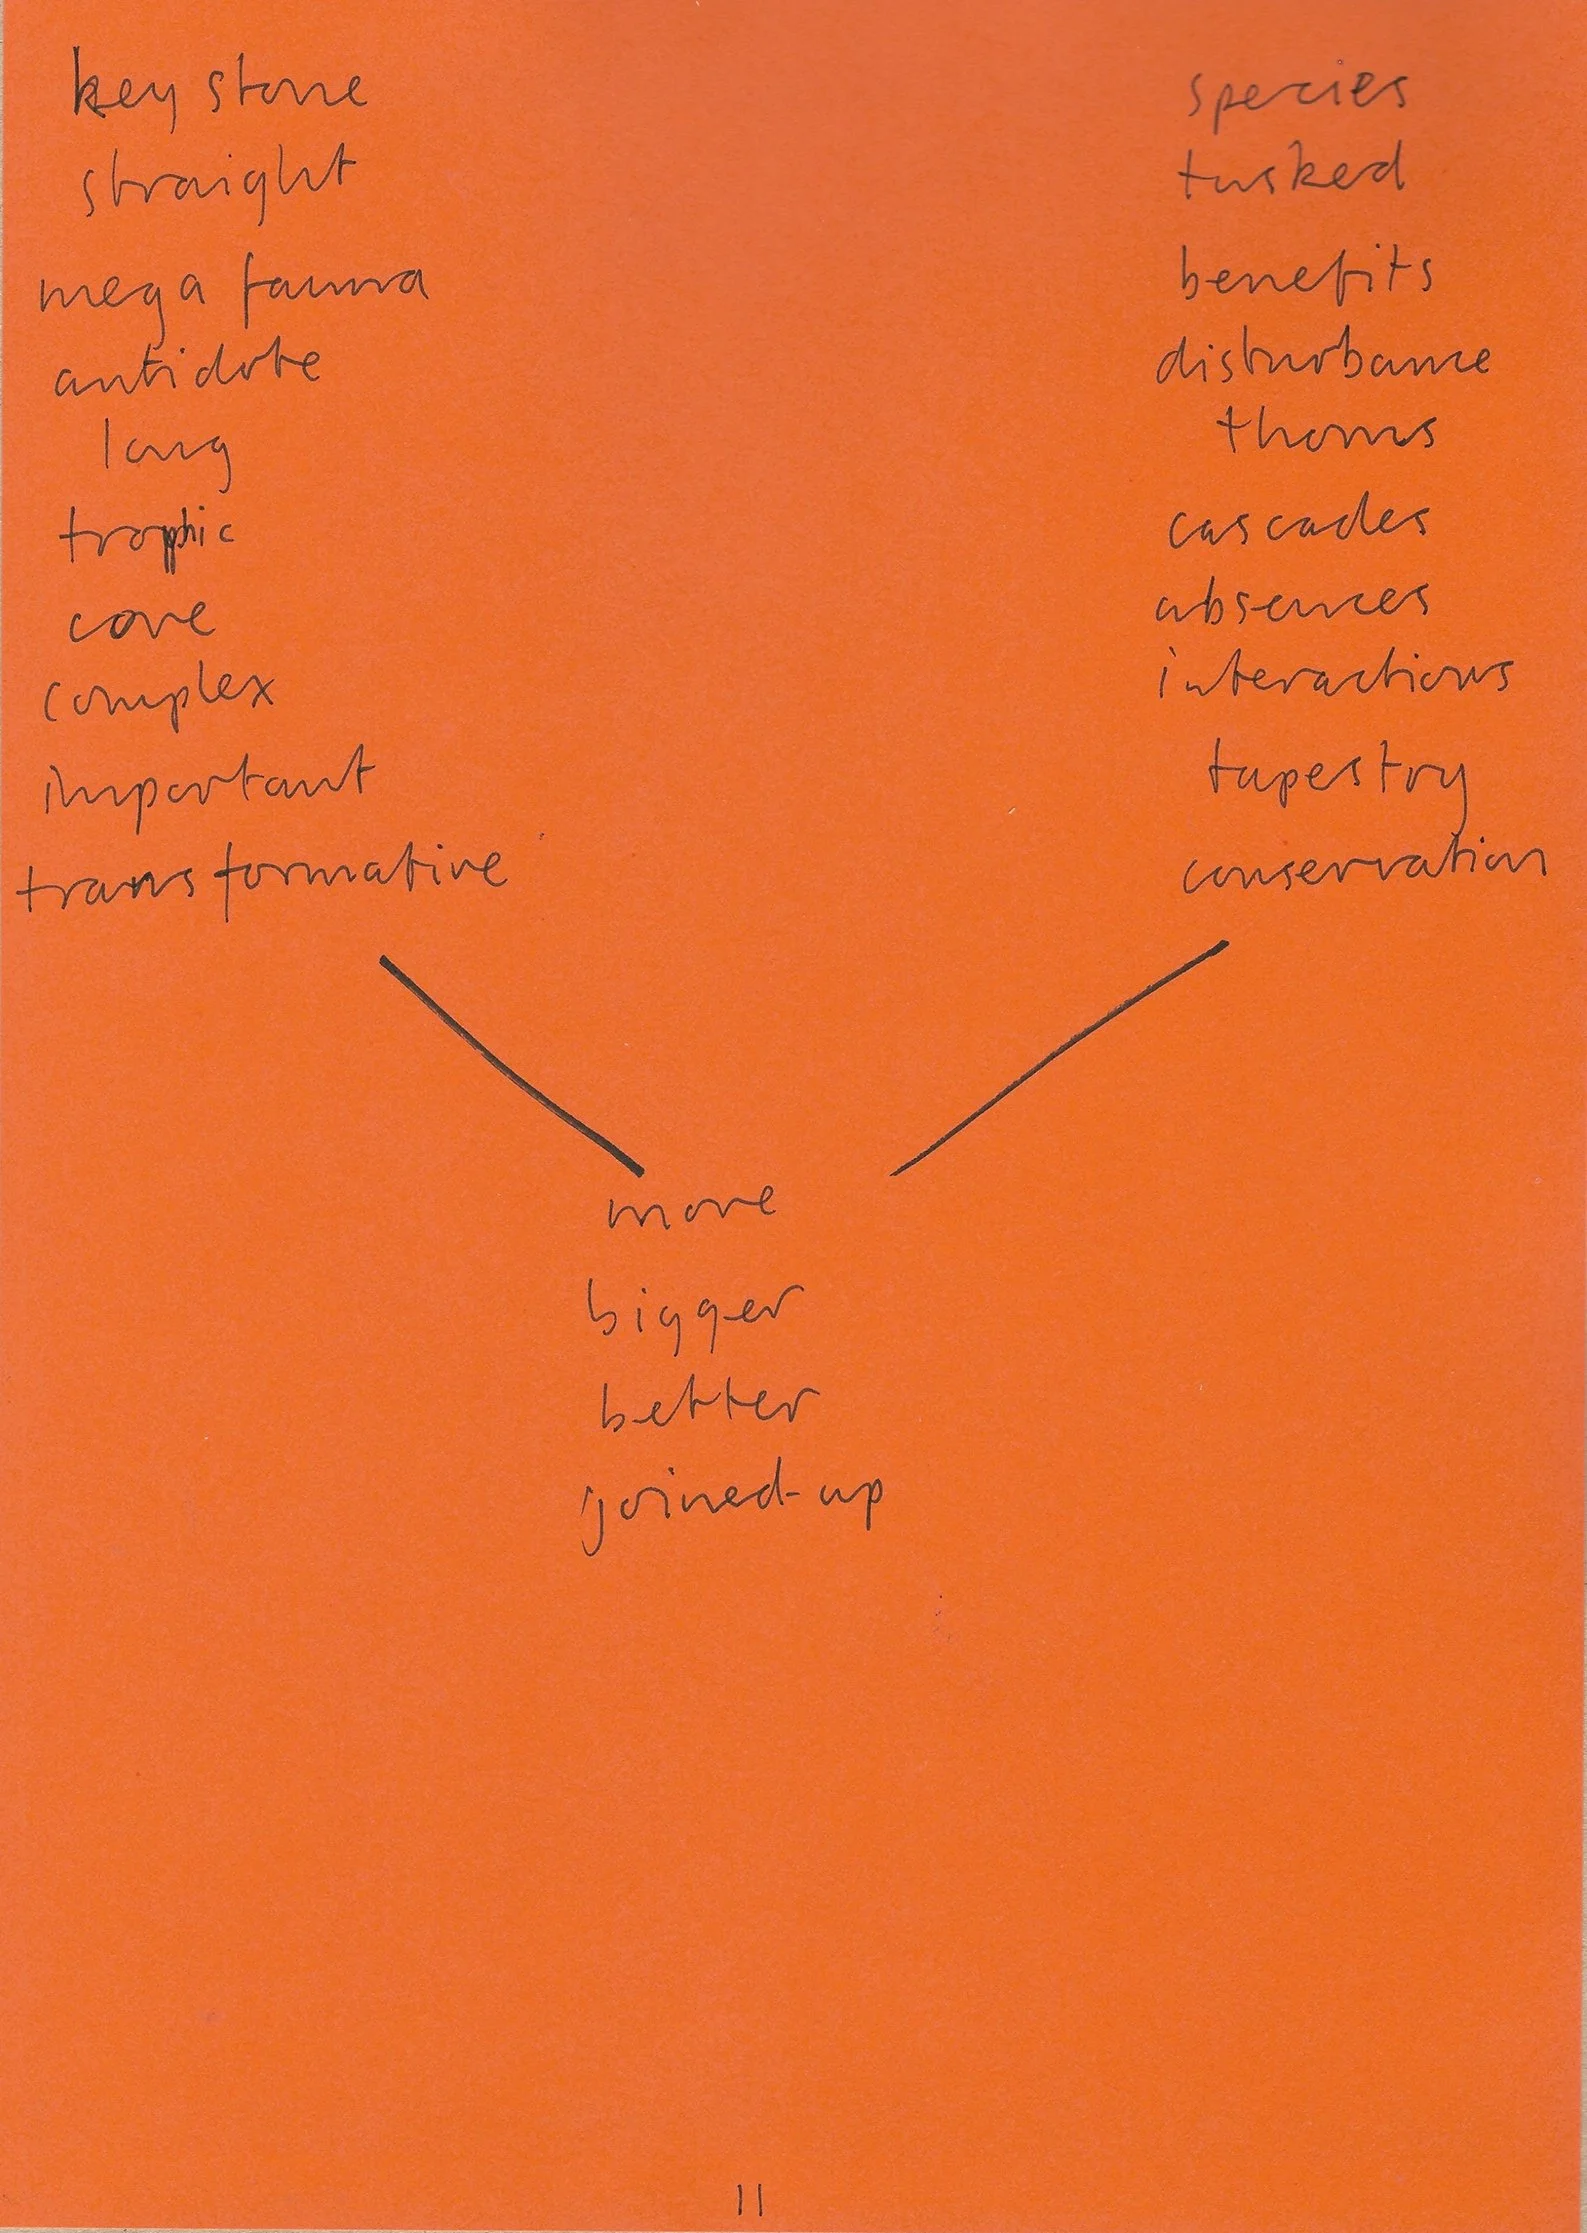 key stone species
straight tusked
mega fauna benefits
antidote disturbance
long thorns
trophic cascades
core absences
complex interactions
important tapestry
transformative conservation
more
bigger
better
joined-up
11